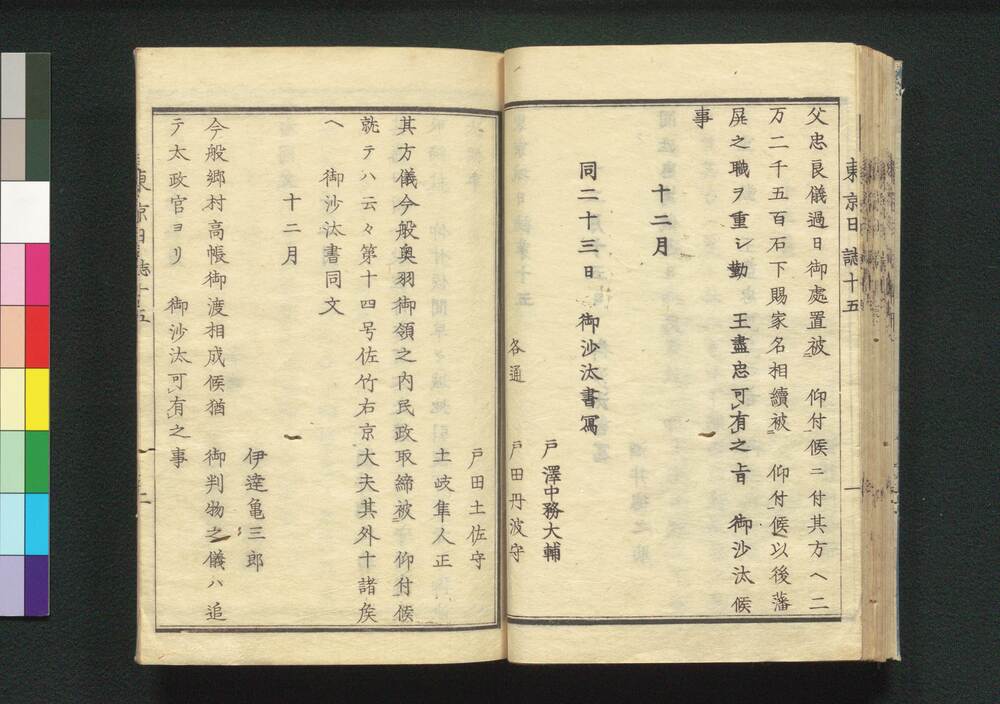 東京日誌十五
一
父忠良儀過日御處置被　仰付候ニ付其方ヘ二
万二千五百石下賜家名相續被　仰付候以後藩
屏之職ヲ重シ勤　王盡忠可有之旨　御沙汰候
事
十二月
同二十三日　御沙汰書冩
戸澤中務大輔
各通　戸田丹波守
戸田土佐守
土岐隼人正
其方儀今般奥羽御領之内民政取締被　仰付候
就テハ云々第十四号佐竹右京大夫其外十諸矦
ヘ　御沙汰書同文
十二月
伊達亀三郎
今般郷村高帳御渡相成候猶　御判物之儀ハ追
テ太政官ヨリ　御沙汰可有之事
東京日誌十五